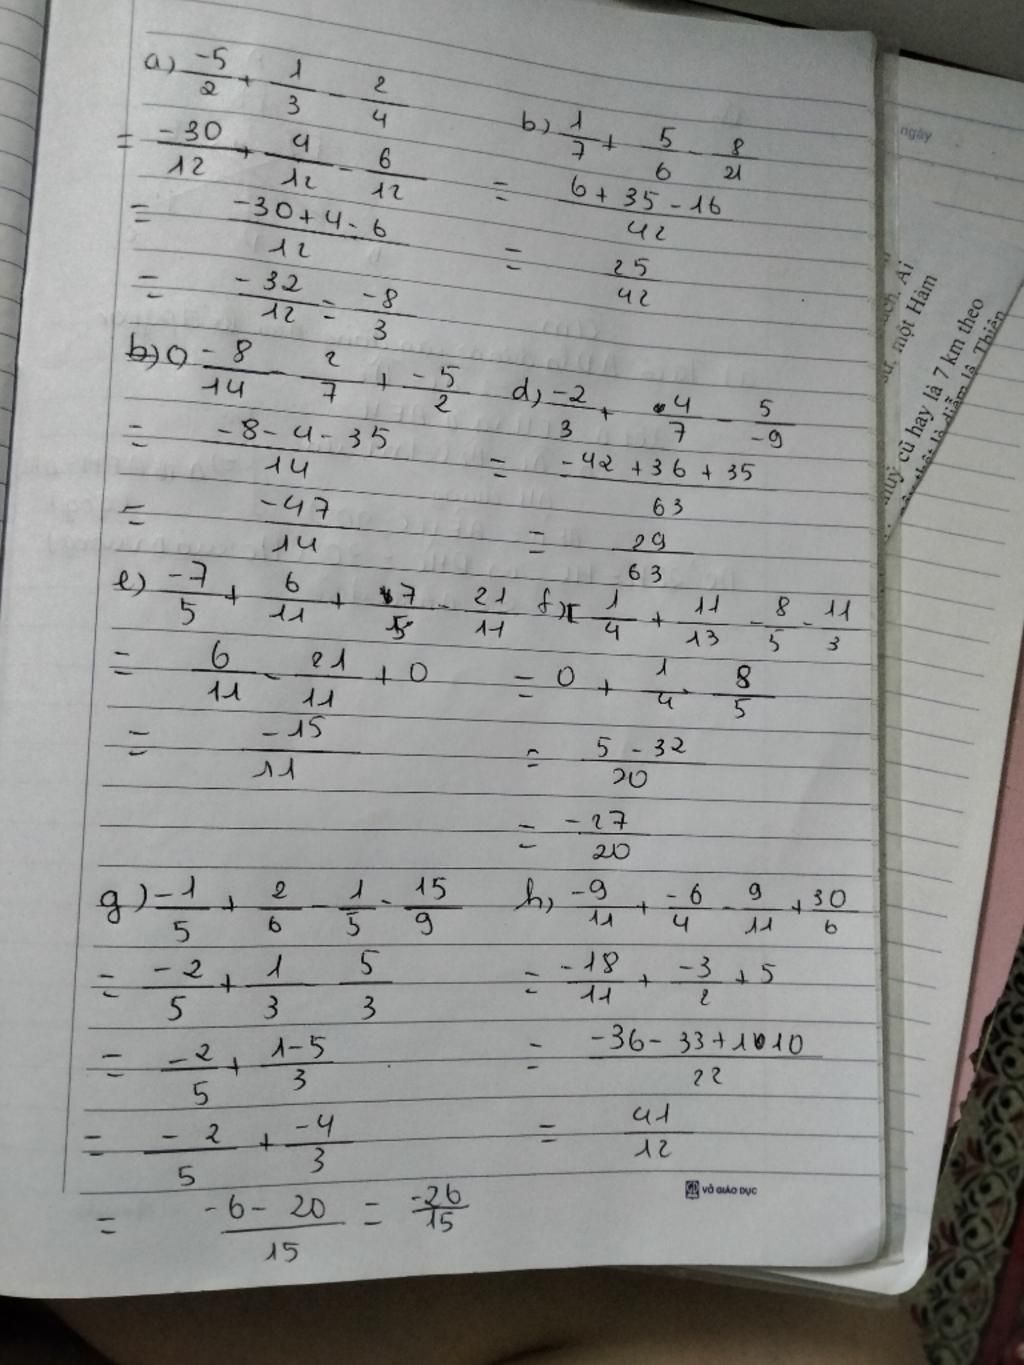 a) -5/2 + 1/3 - 2/4
= -30/12 + 4/12 - 6/12
= -30+4-6/12
= -32/12 = -8/3
b) 1/7 + 5/6 - 8/21
= 6+35-16/42
= 25/42
c) -8/14 - 2/7 + -5/2
= -8-4-35/14
= -47/14
d) -2/3 + 4/7 - 5/-9
= -42+36+35/63
= 29/63
e) -7/5 + 6/11 + 7/5 - 21/11
= 6/11 - 21/11 + 0
= -15/11
f) 1/4 + 11/13 - 8/5 - 11/3
= 0 + 1/4 - 8/5
= 5-32/20
= -27/20
g) -1/5 + 2/6 - 1/5 - 15/9
= -2/5 + 1/3 - 5/3
= -2/5 + 1-5/3
= -2/5 + -4/3
= -6-20/15 = -26/15
h) -9/11 + -6/4 - 9/11 + 30/6
= -18/11 + -3/2 + 5
= -36-33+110/22
= 41/12
VỞ GIÁO DỤC
ngày
một Hàm
cũ hay là 7 km theo